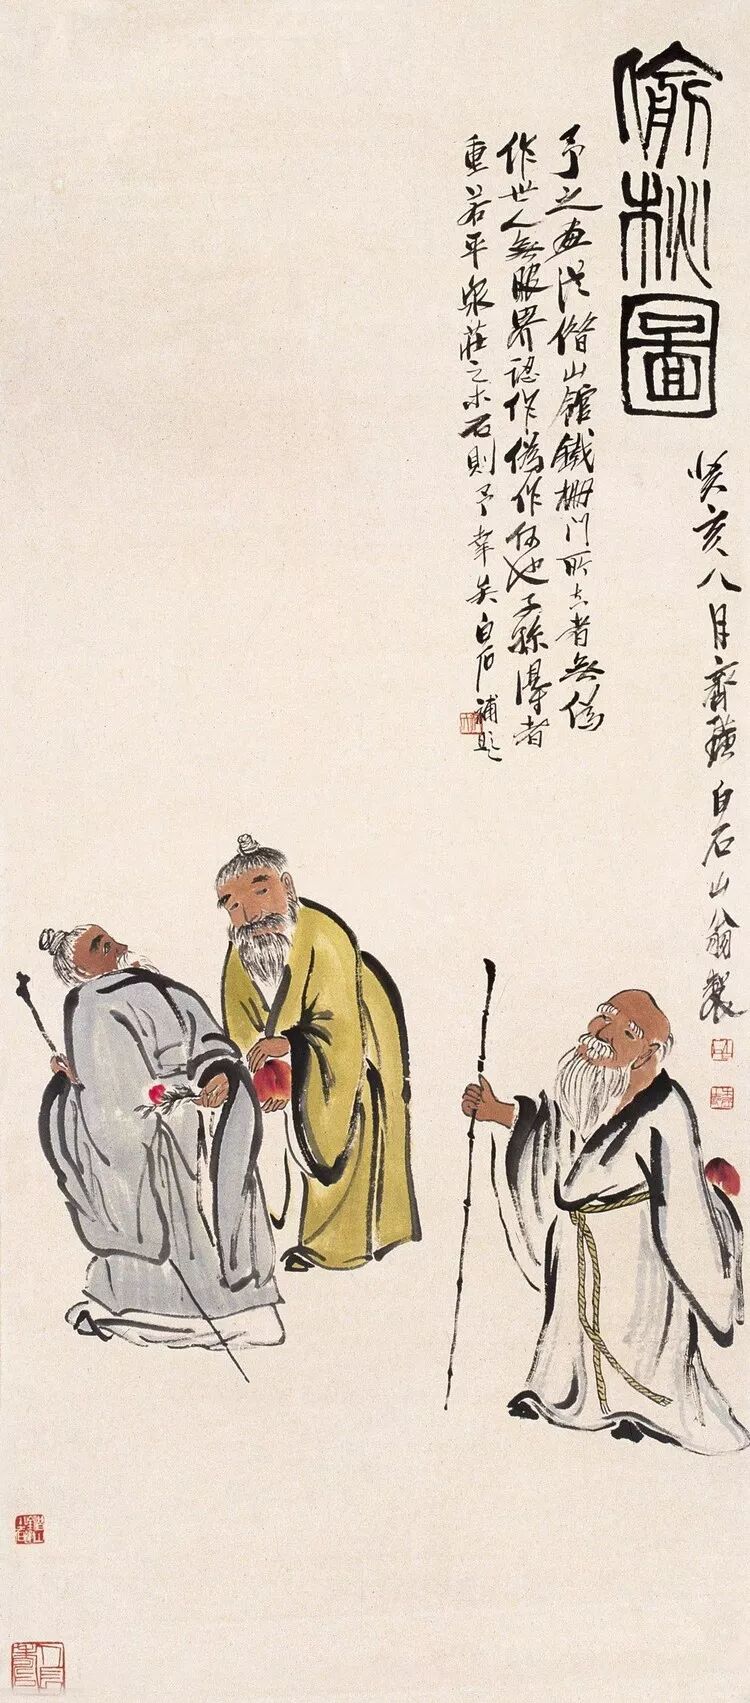 偷桃圖
癸亥八月齊璜白石山翁製
予之畫從借山館鐵柵門所去者無偽
作世人無眼界認作偽作何也子孫得者
重若平泉莊之木石則予幸矣白石補題